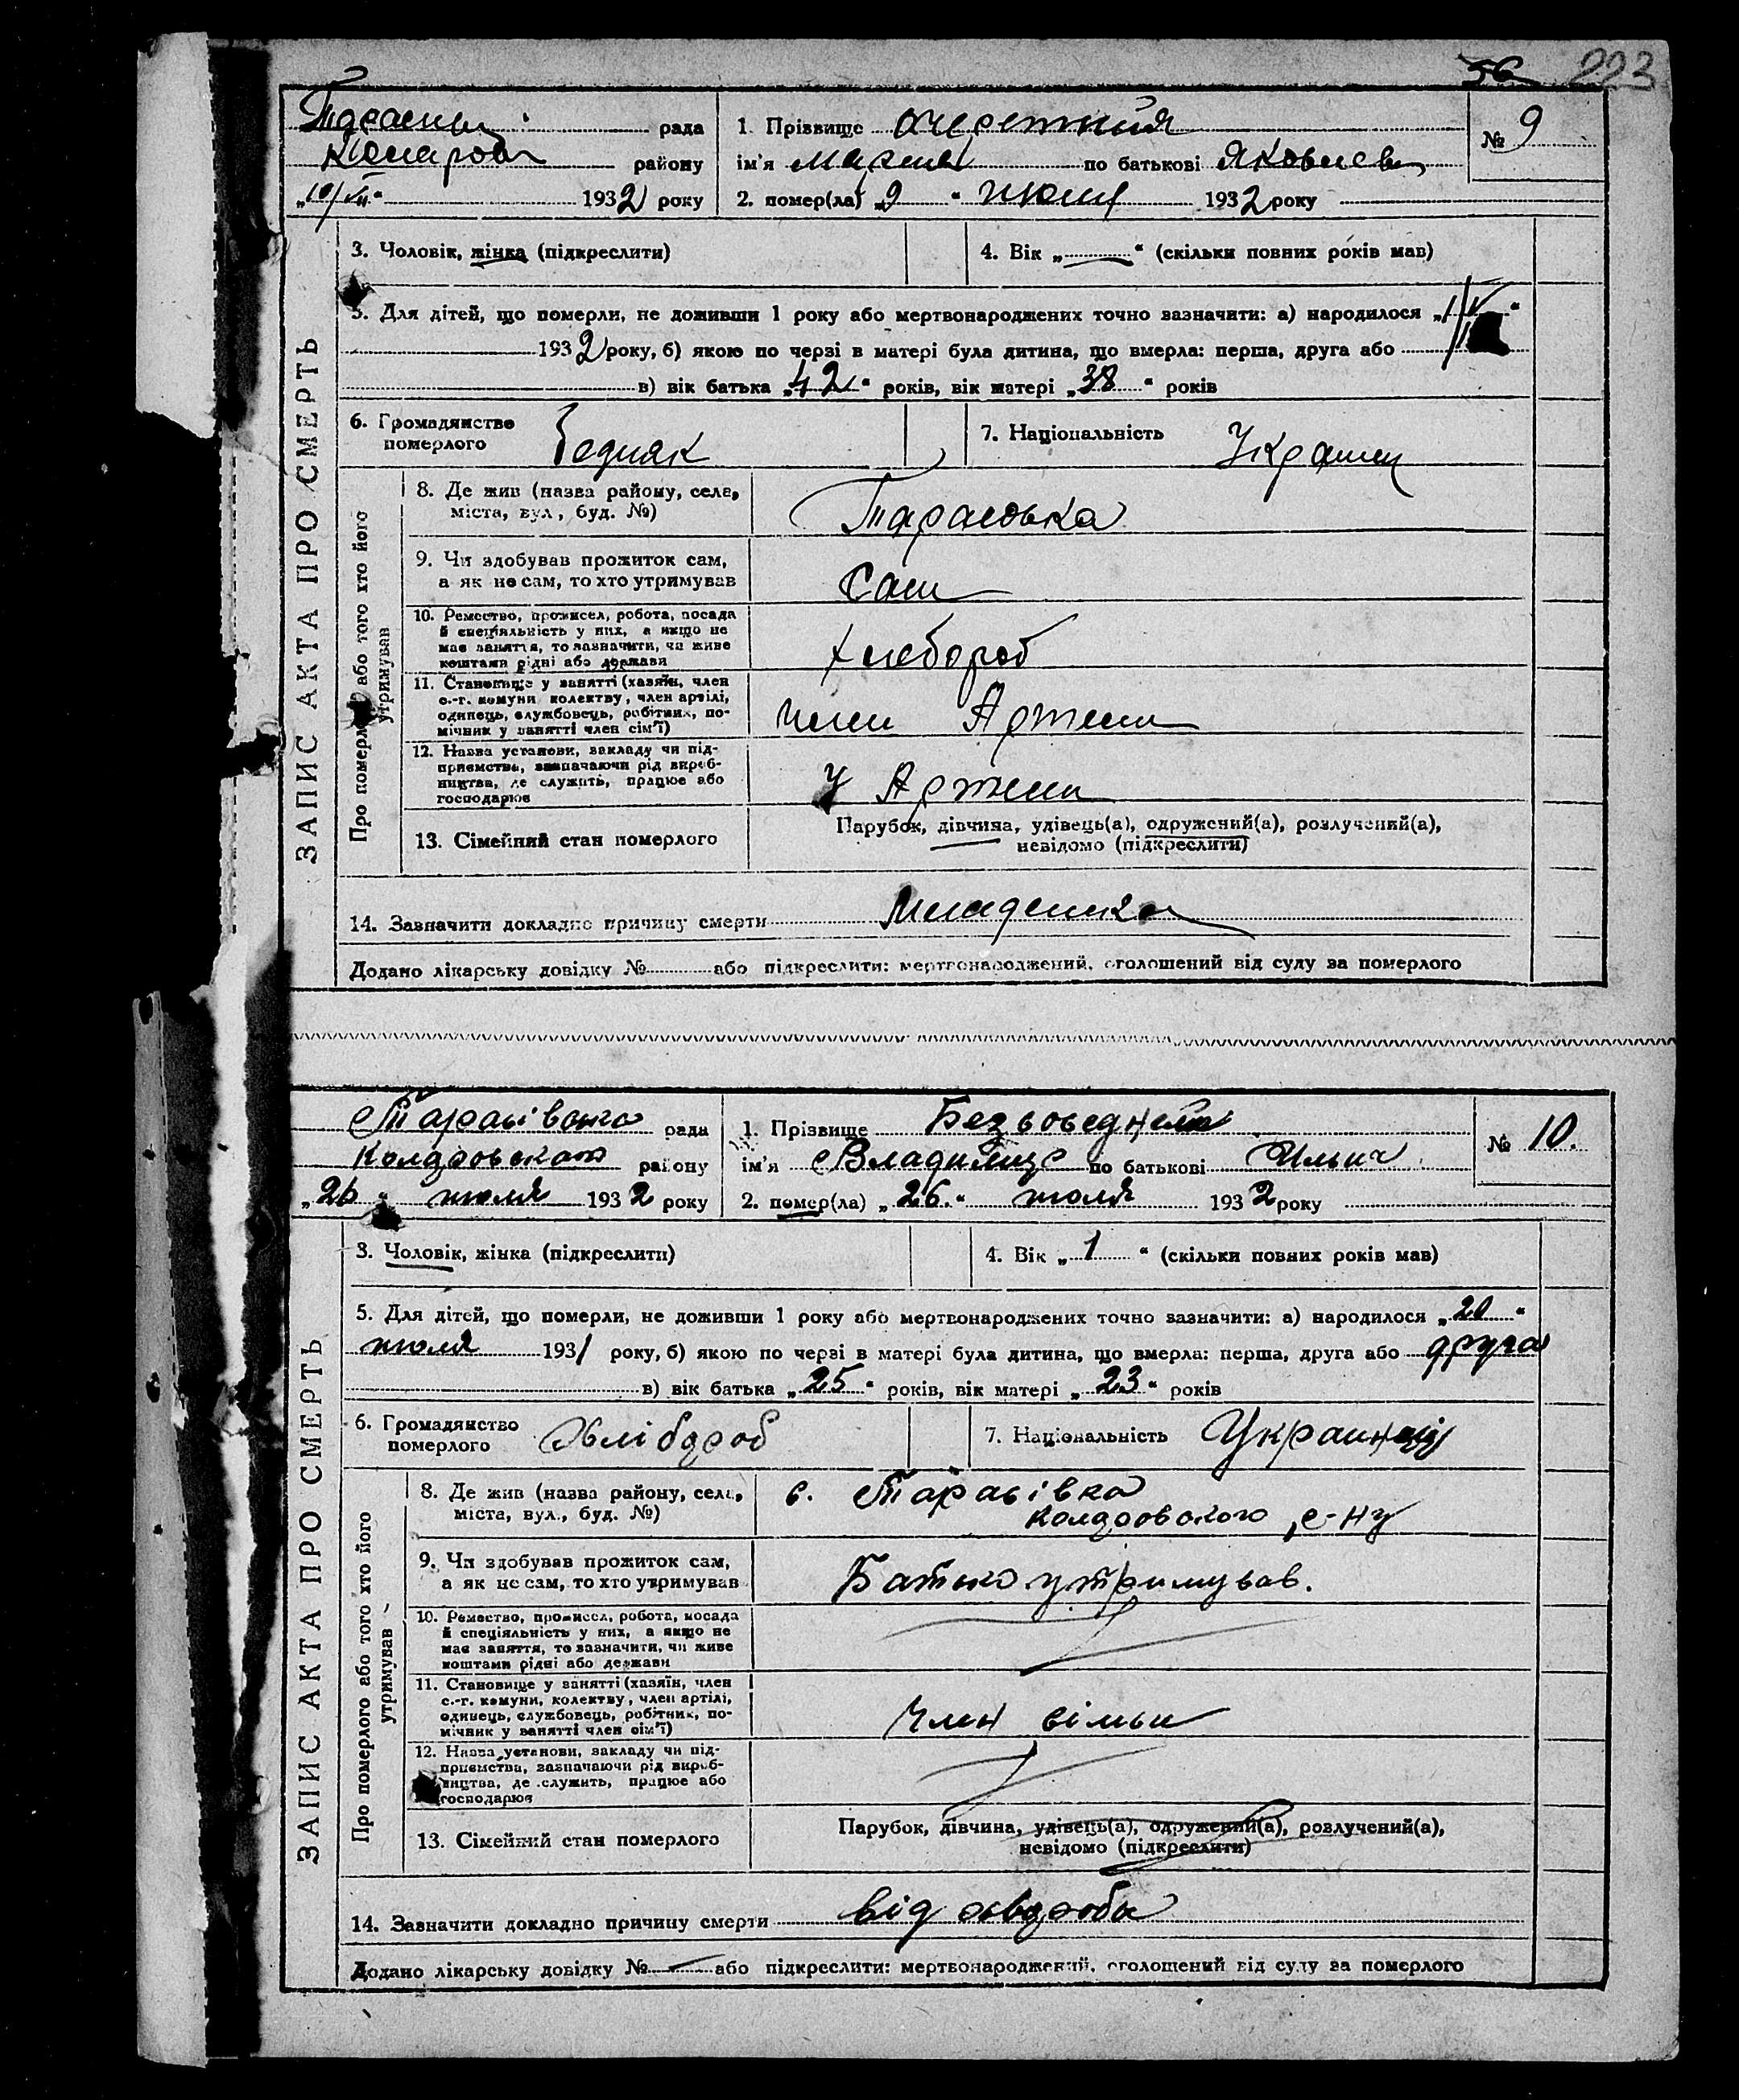 56 223
рада
1. Прізвище
№ 9
району
ім'я по батькові Яковлев
1932 року
2. помер(ла) „9“ июля 1932 року
ЗАПИС АКТА ПРО СМЕРТЬ
3. Чоловік, жінка (підкреслити)
4. Вік „—“ (скільки повних років мав)
5. Для дітей, що померли, не доживши 1 року або мертвонароджених точно зазначити: а) народилося
1932 року, б) якою по черзі в матері була дитина, що вмерла: перша, друга або
в) вік батька „42“ років, вік матері „38“ років
6. Громадянство померлого Бедняк
7. Національність
Про померлого або того хто його утримував
8. Де жив (назва району, села, міста, вул., буд. №)
Тарасовка
9. Чи здобував прожиток сам, а як не сам, то хто утримував
Сам
10. Ремество, промисел, робота, посада й спеціяльність у них, а якщо не має заняття, то зазначити, чи живе коштами рідні або держави
Хлебороб
11. Становище у занятті (хазяїн, член с.-г. комуни, колективу, член артілі, одинець, службовець, робітник, помічник у занятті член сім'ї)
член Артели
12. Назва установи, закладу чи підприємства, зазначаючи рід виробництва, де служить, працює або господарює
У Артели
13. Сімейний стан померлого
Парубок, дівчина, удівець(а), одружений(а), розлучений(а), невідомо (підкреслити)
14. Зазначити докладно причину смерти
Додано лікарську довідку № або підкреслити: мертвонароджений, оголошений від суду за померлого
рада
1. Прізвище
№ 10.
району
ім'я по батькові Ильич
„26“ июля 1932 року
2. помер(ла) „26.“ июля 1932 року
ЗАПИС АКТА ПРО СМЕРТЬ
3. Чоловік, жінка (підкреслити)
4. Вік „1“ (скільки повних років мав)
5. Для дітей, що померли, не доживши 1 року або мертвонароджених точно зазначити: а) народилося „20“
июля 1931 року, б) якою по черзі в матері була дитина, що вмерла: перша, друга або друга
в) вік батька „25“ років, вік матері „23“ років
6. Громадянство померлого Хлібороб
7. Національність
Про померлого або того хто його утримував
8. Де жив (назва району, села, міста, вул., буд. №)
с. Тарасівка
р-ну
9. Чи здобував прожиток сам, а як не сам, то хто утримував
Батько утримував.
10. Ремество, промисел, робота, посада й спеціяльність у них, а якщо не має заняття, то зазначити, чи живе коштами рідні або держави
11. Становище у занятті (хазяїн, член с.-г. комуни, колективу, член артілі, одинець, службовець, робітник, помічник у занятті член сім'ї)
Член сімьи
12. Назва установи, закладу чи підприємства, зазначаючи рід виробництва, де служить, працює або господарює
13. Сімейний стан померлого
Парубок, дівчина, удівець(а), одружений(а), розлучений(а), невідомо (підкреслити)
14. Зазначити докладно причину смерти від хвороби
Додано лікарську довідку № — або підкреслити: мертвонароджений, оголошений від суду за померлого